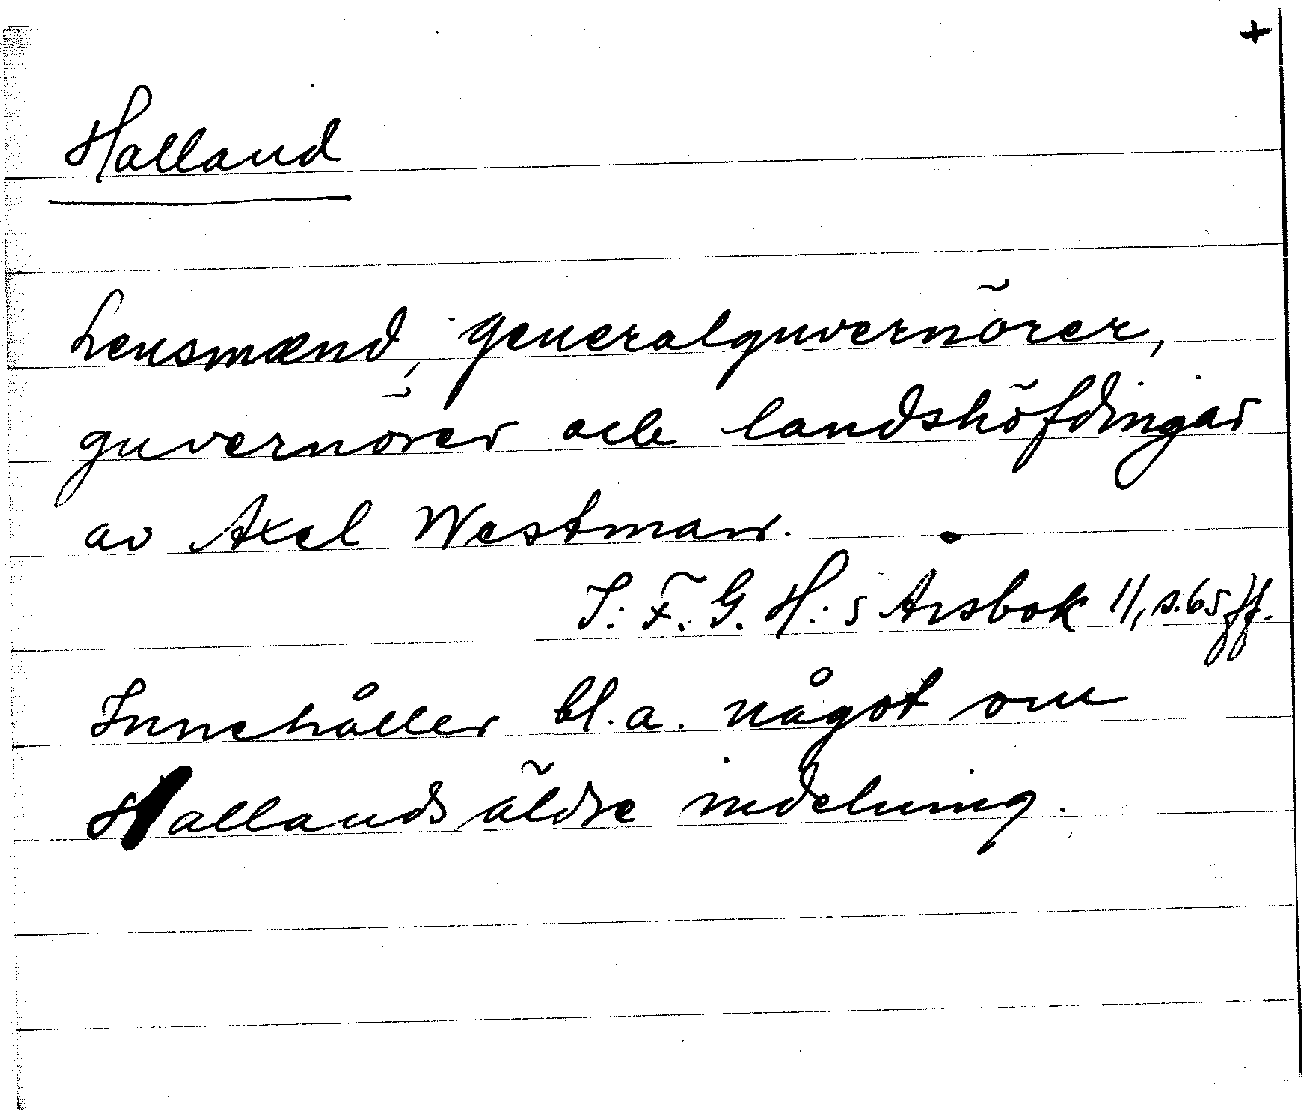 +
Halland
Lensmænd, generalguvernörer,
guvernörer och landshöfdingar
av Axel Westman.
S. F. G. H:s Årsbok 11, s. 65 ff.
Innehåller bl.a. något om
Hallands äldre indelning.